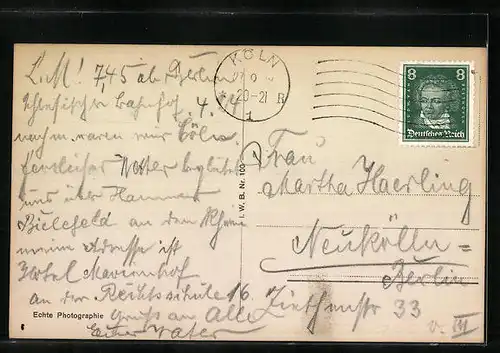 L. M! 7,45 ab Berlin
Schlesischer Bahnhof 4.14
nachm. waren wir Cöln.
herrliches Wetter begleitet
uns über Hannover
Bielefeld an den Rhein
meine Adresse ist
Hotel Marienhof
an der Rechtsschule 16
Gruß an Alle
Euer Vater
Echte Photographie
I. W. B. Nr. 100
KÖLN
20-21 R
1
8 8
Deutsches Reich
Frau
Martha Haerling
Neukölln=
Berlin
Ziethenstr 33
v. III